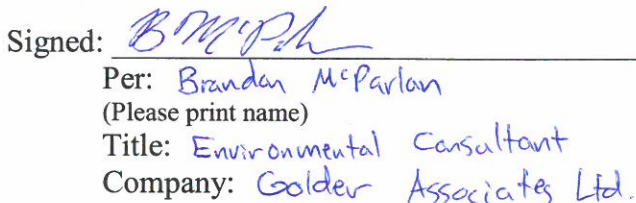 Signed: B McP
Per: Brandon McParlan
(Please print name)
Title: Environmental Consultant
Company: Golder Associates Ltd.